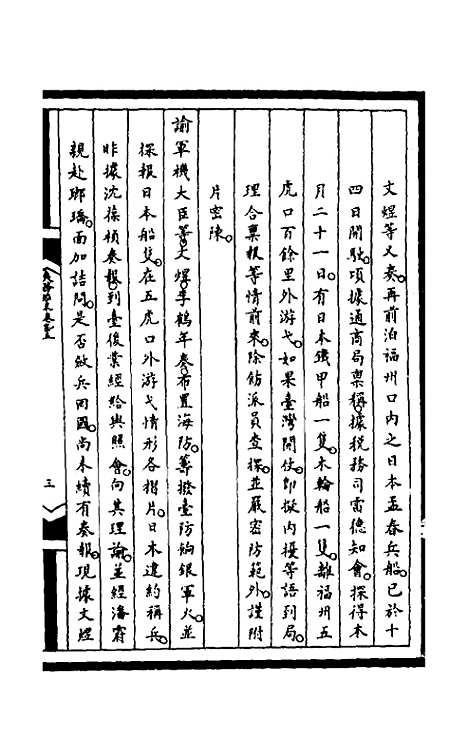 文煜等又奏。再前泊福州口内之日本孟春兵船。已於十
四日開駛。頃據通商局稟稱。據稅務司雷德知會。探得本
月二十一日。有日本鐵甲船一隻。木輪船一隻。離福州五
虎口百餘里外游弋。如果臺灣開仗。即擬内擾等語到局。
理合稟報等情前來。除飭派員查探。並嚴密防範外。謹附
片密陳。
諭軍機大臣等。文煜。李鶴年奏。布置海防。籌撥臺防餉銀軍火。並
探報日本船隻。在五虎口外游弋情形各摺片。日本違約稱兵。
昨據沈葆楨奏報。到臺後業經給與照會。向其理諭。並經潘霨
親赴瑯𤩝。面加詰問。是否斂兵回國。尚未續有奏報。現據文煜
三